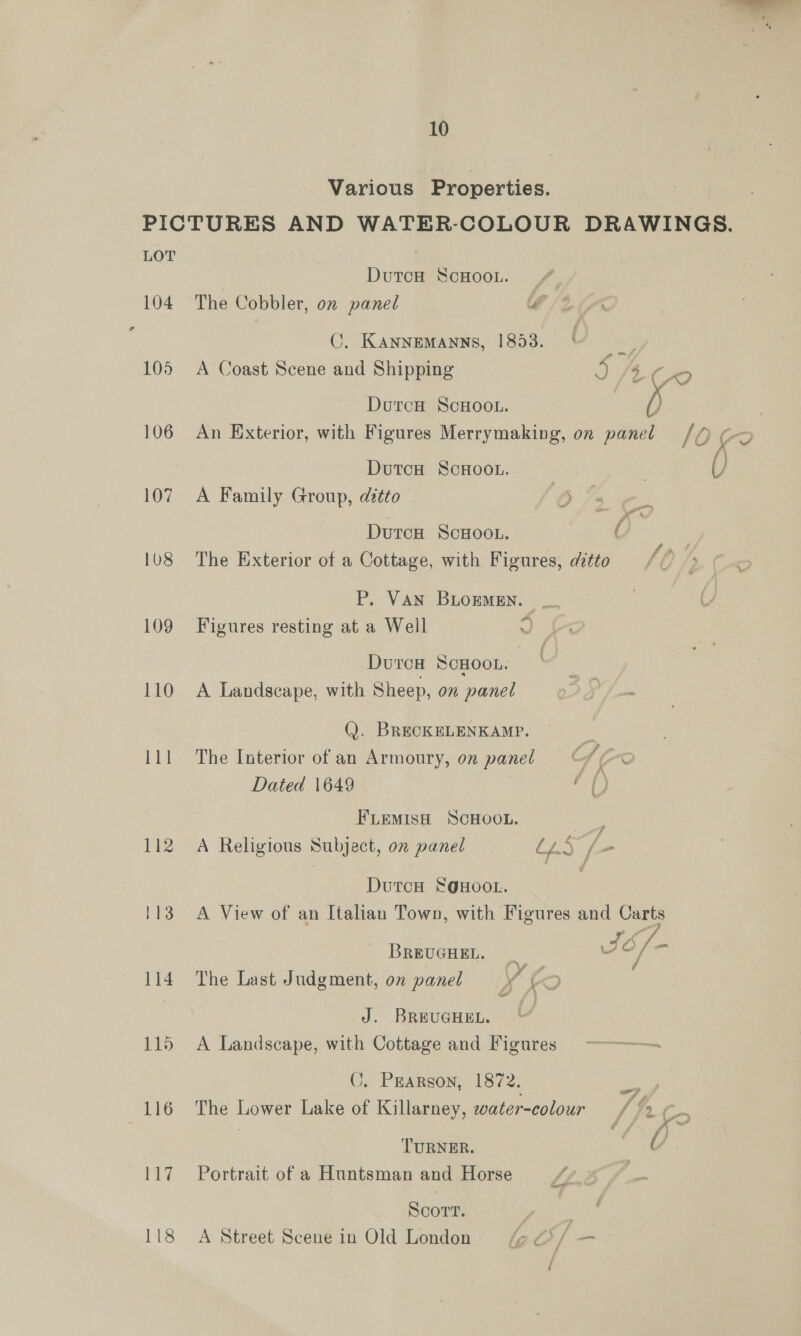 10
Various Properties.
PICTURES AND WATER-COLOUR DRAWINGS.
LOT
DUTCH SCHOOL.
104 The Cobbler, on panel
C. KANNEMANNS, 1853.
105 A Coast Scene and Shipping
DUTCH SCHOOL.
106 An Exterior, with Figures Merrymaking, on panel
DUTCH SCHOOL.
107 A Family Group, ditto
DUTCH SCHOOL.
108 The Exterior of a Cottage, with Figures, ditto
P. VAN BLOEMEN.
109 Figures resting at a Well
DUTCH SCHOOL.
110 A Landscape, with Sheep, on panel
Q. BRECKELENKAMP.
111 The Interior of an Armoury, on panel
Dated 1649
FLEMISH SCHOOL.
112 A Religious Subject, on panel
DUTCH SCHOOL.
113 A View of an Italian Town, with Figures and Carts
BREUGHEL.
114 The Last Judgment, on panel
J. BREUGHEL.
115 A Landscape, with Cottage and Figures
C. PEARSON, 1872.
116 The Lower Lake of Killarney, water-colour
TURNER.
117 Portrait of a Huntsman and Horse
SCOTT.
118 A Street Scene in Old London